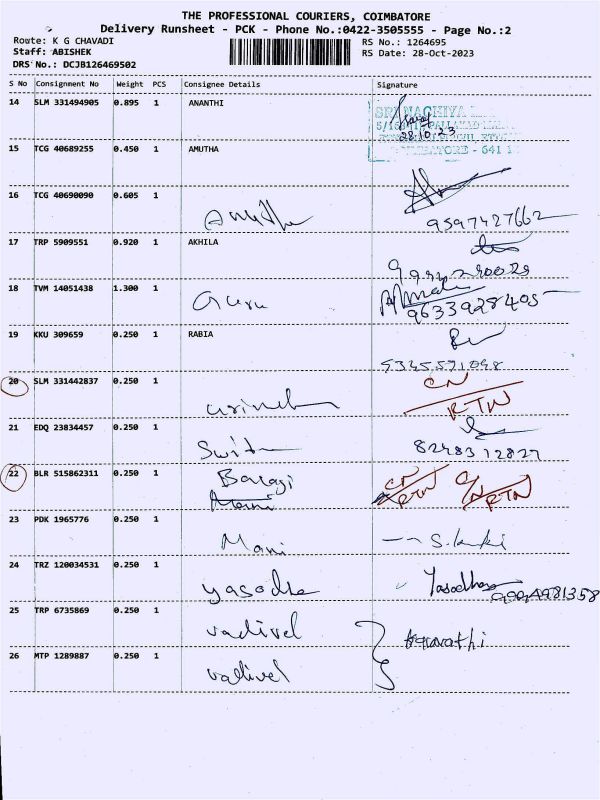 THE PROFESSIONAL COURIERS, COIMBATORE
Delivery Runsheet - PCK - Phone No.:0422-3505555 - Page No.:2
Route: K G CHAVADI
RS No.: 1264695
Staff: ABISHEK
RS Date: 28-Oct-2023
DRS No.: DCJB126469502
S No Consignment No Weight PCS Consignee Details Signature
14 SLM 331494905 0.895 1 ANANTHI
SRI NACHIYA
28.10.23
- 641 1
15 TCG 40689255 0.450 1 AMUTHA
16 TCG 40690090 0.605 1 Amutha
9597427662
17 TRP 5909551 0.920 1 AKHILA
18 TVM 14051438 1.300 1 Guru
9633928405
19 KKU 309659 0.250 1 RABIA
20 SLM 331442837 0.250 1 CN
RTN
21 EDQ 23834457 0.250 1
8248312827
22 BLR 515862311 0.250 1 Balagi CN
RTN
Mani
23 PDK 1965776 0.250 1 Mani
24 TRZ 120034531 0.250 1 yasodha Yasodha
25 TRP 6735869 0.250 1 vadivel
26 MTP 1289887 0.250 1 vadivel